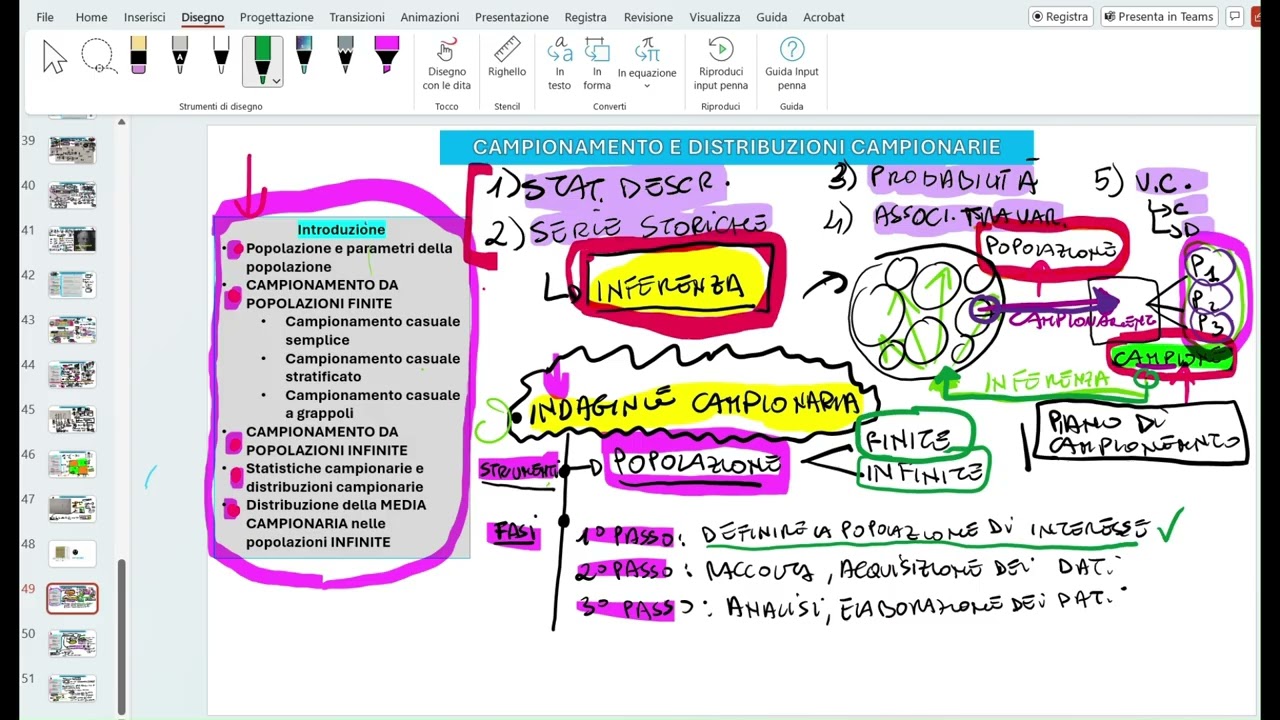 File Home Inserisci Disegno Progettazione Transizioni Animazioni Presentazione Registra Revisione Visualizza Guida Acrobat
Registra Presenta in Teams
Disegno con le dita
Righello
In testo
In forma
In equazione
Riproduci input penna
Guida Input penna
Strumenti di disegno Tocco Stencil Converti Riproduci Guida
39
40
41
42
43
44
45
46
47
48
49
50
51
CAMPIONAMENTO E DISTRIBUZIONI CAMPIONARIE
Introduzione
• Popolazione e parametri della
popolazione
• CAMPIONAMENTO DA
POPOLAZIONI FINITE
• Campionamento casuale
semplice
• Campionamento casuale
stratificato
• Campionamento casuale
a grappoli
• CAMPIONAMENTO DA
POPOLAZIONI INFINITE
• Statistiche campionarie e
distribuzioni campionarie
• Distribuzione della MEDIA
CAMPIONARIA nelle
popolazioni INFINITE
1) STAT. DESCR.
2) SERIE STORICHE
3) PROBABILITÀ
4) ASSOCI. TRA VAR
5) V.C.
C
D
INFERENZA
POPOLAZIONE
P1
P2
P3
CAMPIONE
INFERENZA
PIANO DI
INDAGINE CAMPIONARIA
STRUMENTI
POPOLAZIONE
FINITE
INFINITE
FASI
1° PASSO: DEFINIRE LA POPOLAZIONE DI INTERESSE
2° PASSO: RACCOLTA, ACQUISIZIONE DEI DATI
3° PASSO: ANALISI, ELABORAZIONE DEI DATI